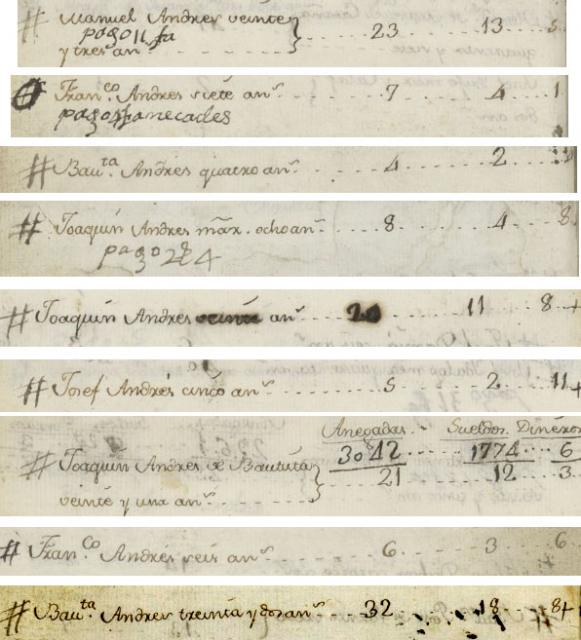 Manuel Andres veinte
pago 11 fa
y tres an.s 23 13 5
Fran.co Andres siete an.s 7 4 1
pago fanecades
# Bau.ta Andres quatro an.s 4 2
# Joaquin Andres mār. ocho an.s 8 4 8
pago 2 4
# Joaquin Andres veinte an.s 20 11 8
# Josef Andres cinco an.s 5 2 11
Anegadas. Sueldos. Dineros
3042 1774 6
# Joaquin Andres de Bautista 21 12 3
veinte y una an.s
# Fran.co Andres seis an.s 6 3 6
# Bau.ta Andres treinta y dos an.s 32 18 8